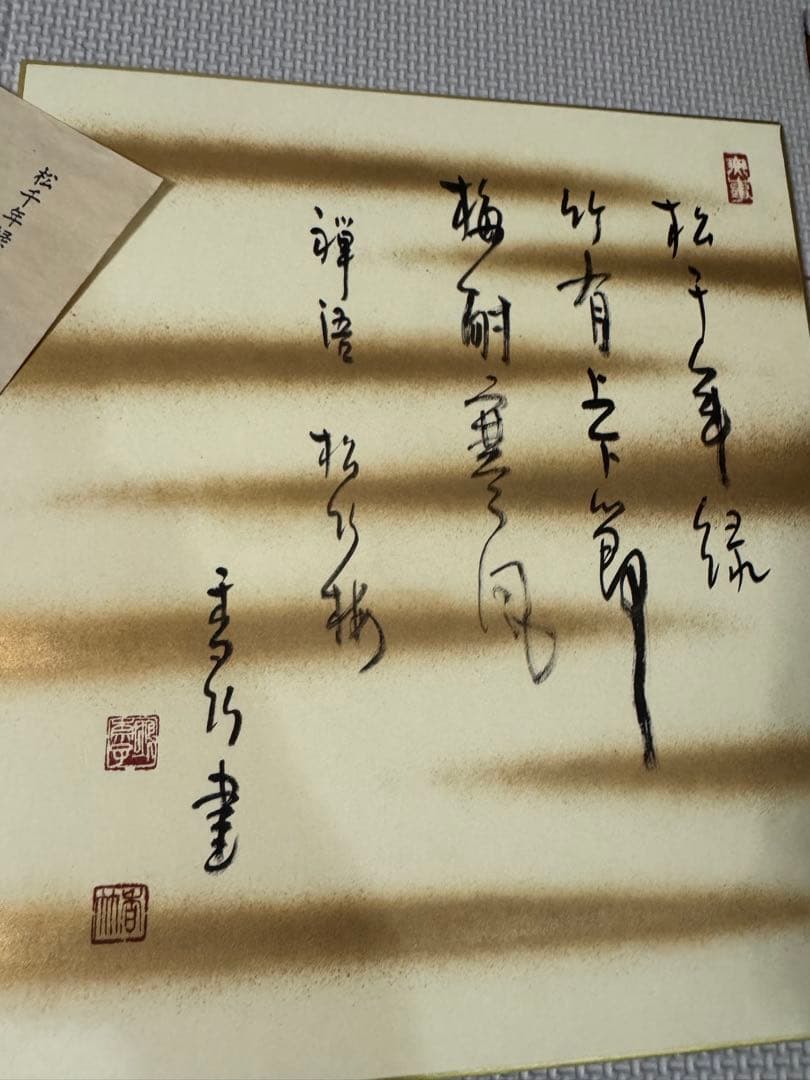 松千年緑
竹有上下節
梅耐寒風
禅語 松竹梅
香竹書
香竹
松千年緑